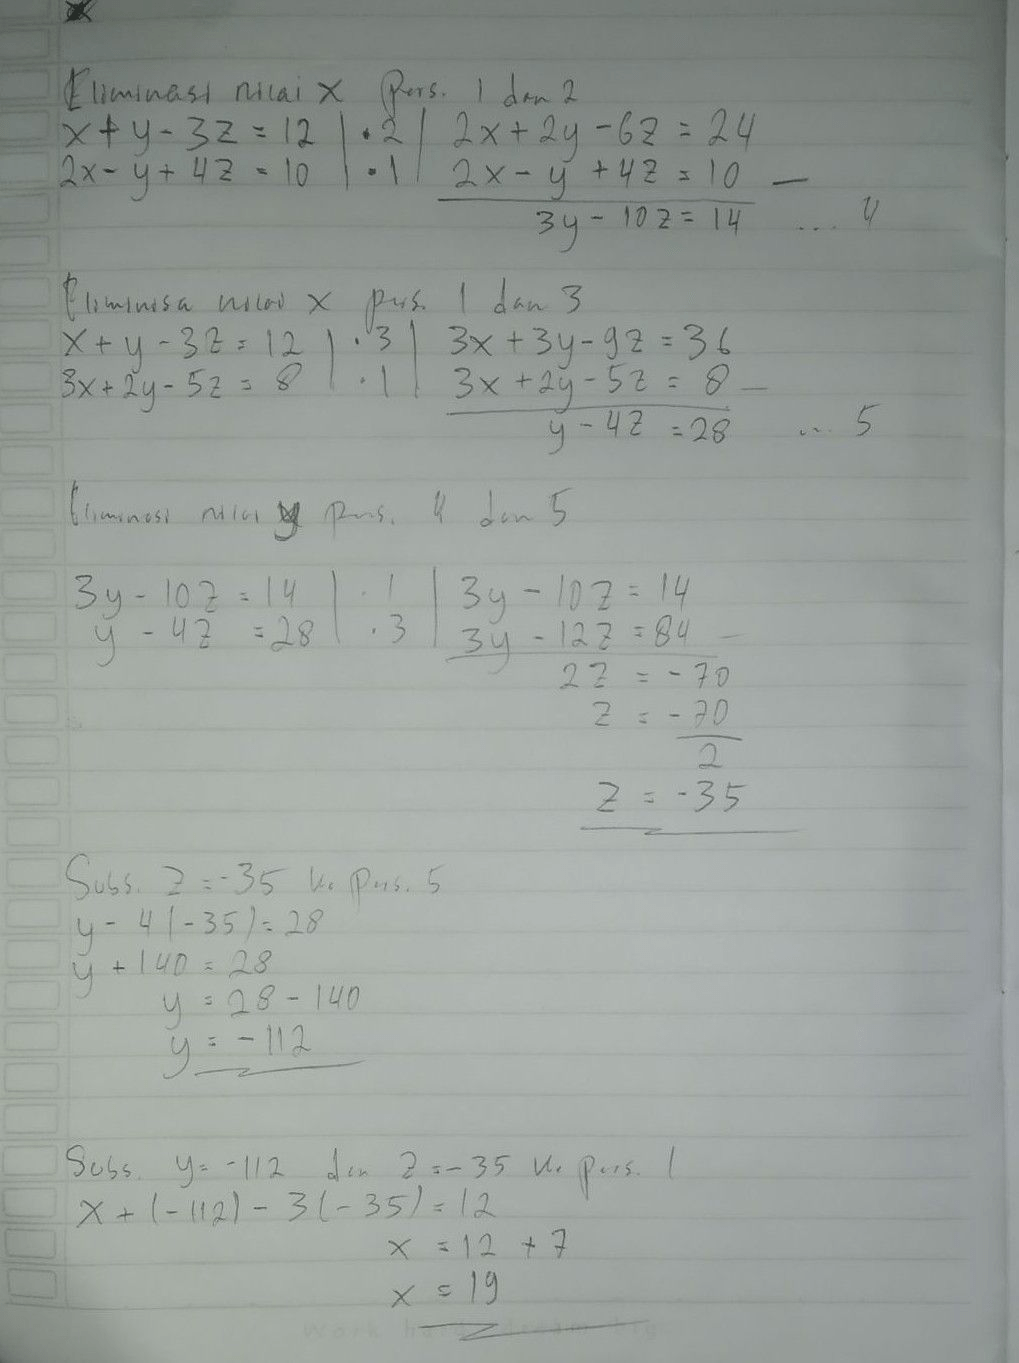 Eliminasi nilai x Pers. 1 dan 2
x + y - 3z = 12 | • 2 | 2x + 2y - 6z = 24
2x - y + 4z = 10 | • 1 | 2x - y + 4z = 10 -
3y - 10z = 14 ... 4
Eliminisa nilai x pers. 1 dan 3
x + y - 3z = 12 | . 3 | 3x + 3y - 9z = 36
3x + 2y - 5z = 8 | . 1 | 3x + 2y - 5z = 8 -
y - 4z = 28 ... 5
Eliminasi nilai y pers. 4 dan 5
3y - 10z = 14 | . 1 | 3y - 10z = 14
y - 4z = 28 | . 3 | 3y - 12z = 84 -
2z = -70
z = -70
2
z = -35
Subs. z = -35 ke pers. 5
y - 4(-35) = 28
y + 140 = 28
y = 28 - 140
y = -112
Subs. y = -112 dan z = -35 ke pers. 1
x + (-112) - 3(-35) = 12
x = 12 + 7
x = 19